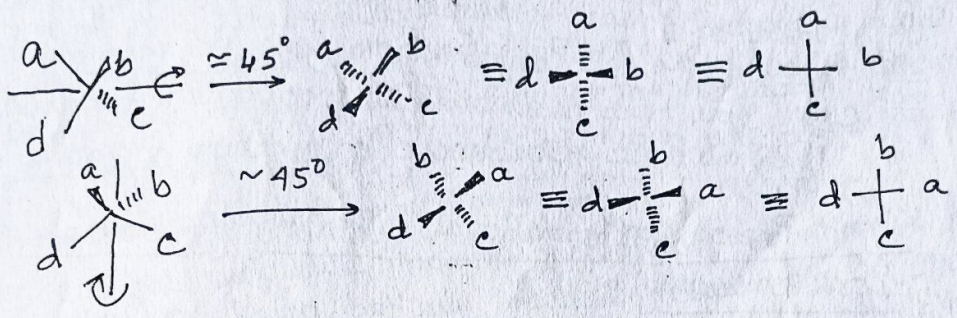 a b c d ≃45° a b c d ≡ a d b c ≡ a d b c
a b c d ~45° b a d c ≡ b d a c ≡ b d a c